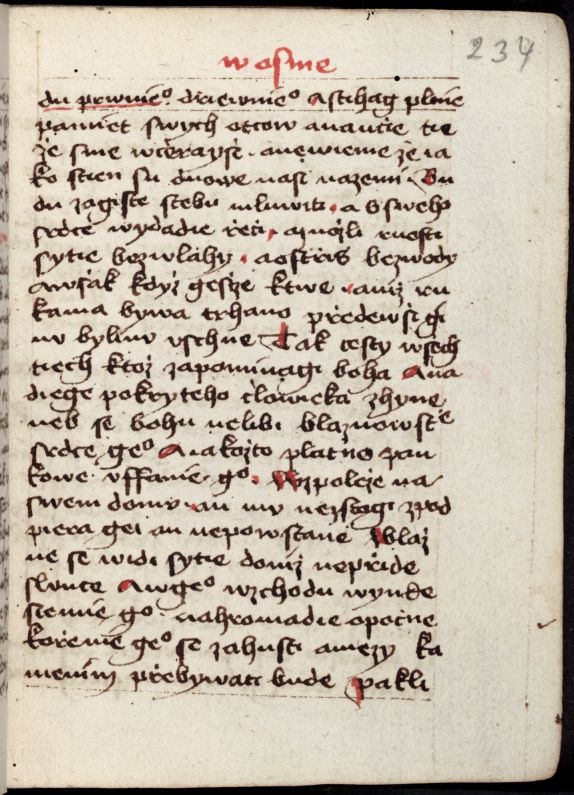 w osme
234
du prwnieᵒ. dřiewnieᵒ Astihag plnie
pamiet swych otcow anautčie tie
že sme wčerayši . anewieme že ia
ko stien su dnowe nasi nazemi . Bu
du zagiste stebu mluwiti . a Ssweho
srdce wydadie řeči . amožli ruosti
sytie bezwlahy . aostřis bezwody
awšak když gešže ktwe . aniz ru
kama bywa trhano předewši gi
nu bylinu vschne Tak cesty wsech
tiech ktož zapominagi boha Ana
diege pokryteho člowieka zhyne
neb se bohu nelibi blaznowstᵉ
srdce geᵒ Aiakožto platno pau
kowe vffanie gᵒ. Wzpoleže na
swem domu . an mu nezstogi zpod
piera gei an nepowstane Wlaž
ne se widi sytie doniz nepřide
slunce Awgeᵒ wzchodu wynde
siemie gᵒ nahromadie opočne
kořenie geᵒ se zahusti amezy ka
menim přebywati bude Pakli